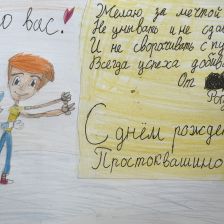 о вас!
Желаю за мечтой
Не унывать и не сда
И не сворачивать с пу
Всегда успеха добив
От
Ро
С днём рожде
Простоквашино